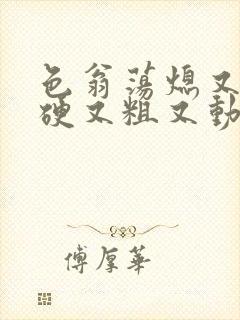 色翁荡熄又
硬又粗又動
傅厚華